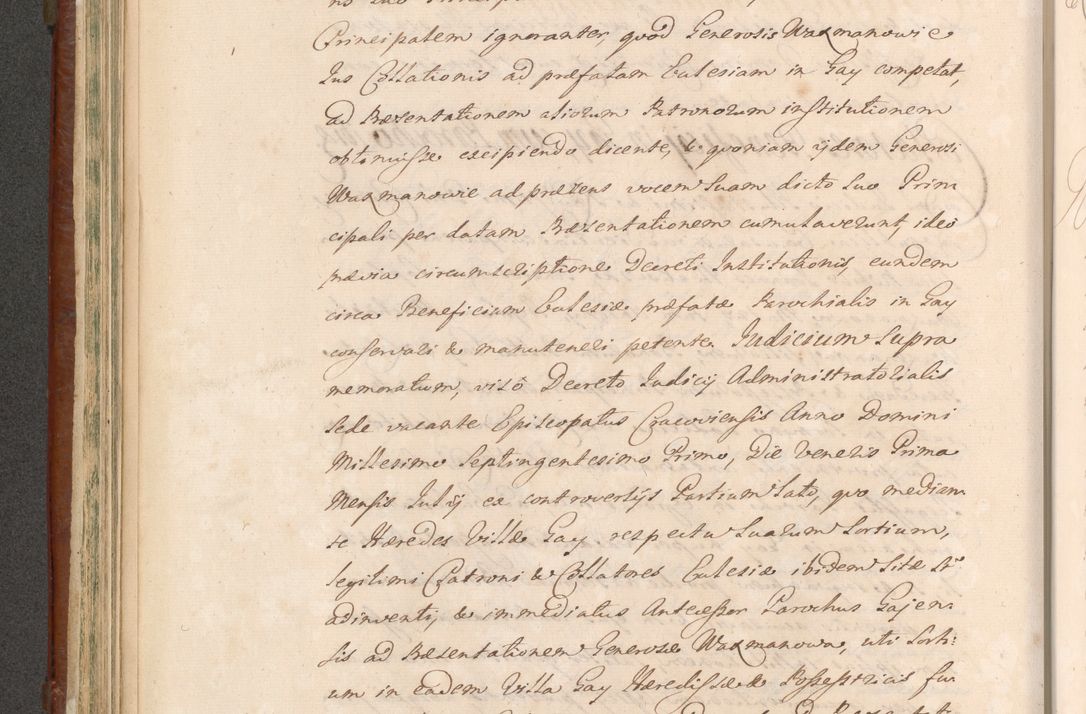 Principalem ignoranter, quod Generosis Waxmanowie
Ius Collationis ad præfatam Eulesiam in Gay competat,
ad Præsentationem aliorum Patronorum institutionem
obtinuisse excipiendo dicente, & quoniam ijdem Generosi
Waxmanowie ad præsens vocem Suam dicto Suo Prin
cipali per datam Præsentationem cumulaverunt, ideo
prævia circumscriptione Decreti Institutionis, eundem
circa Beneficium Eulesiæ præfatæ Parochialis in Gay
conservari & manuteneri petente. Iudicium Supra
memoratum, visô Decreto Iudicij Administratorialis
Sede vacante Episcopatus Cracoviensis Anno Domini
Millesimo Septingentesimo Primo, Die Veneris Prima
Mensis Iulij ex controversijs Partium lato, quo median
te Hæredes Villæ Gay respectu Suarum Sortium,
legitimi Patroni & Collatores Eulesiæ ibidem Sitæ St
adinventi, & immediatus Antecessor Parochus Gajen:
sis ad Præsentationem Generosæ Waxmanowa, uti Sorti:
um in eadem Villa Gay Hæredissæ & Possessricis fu